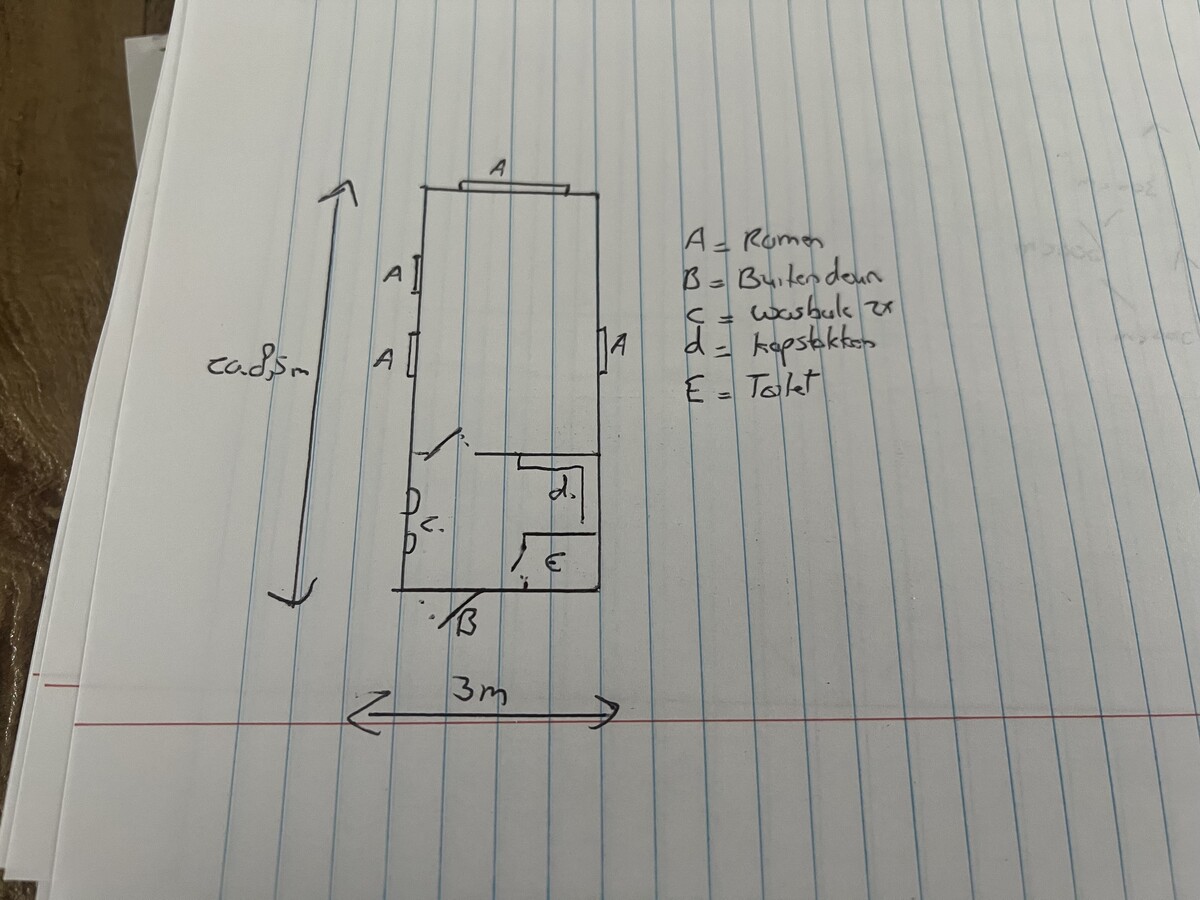 A
A
A
A
ca. 8,5 m
A = Ramen
B = Buitendeur
C = wasbak 2x
d = kapstokken
E = Toilet
d.
C.
E
B
3m